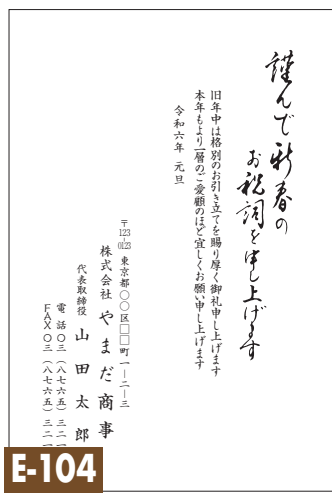 謹んで新春の
お祝詞を申し上げます
旧年中は格別のお引き立てを賜り厚く御礼申し上げます
本年もより一層のご愛顧のほど宜しくお願い申し上げます
令和六年 元旦
〒123-0123 東京都○○区□□町一ー二ー三
株式会社 やまだ商事
代表取締役 山田太郎
電話〇三(八七六五)三二一
FAX〇三(八七六五)三二一
E-104